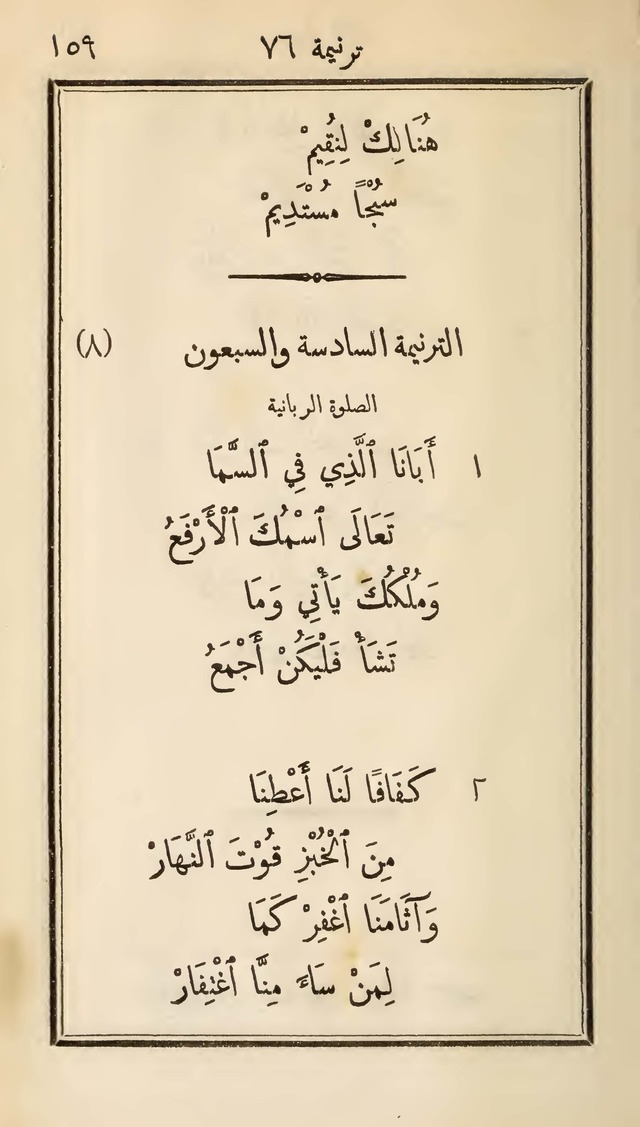 ترنيمة ٧٦ ١٥٩
هُنَالِكْ لِنُقِيمْ
سُبْحًا مُسْتَدِيمْ
الترنيمة السادسة والسبعون (٨)
الصلوة الربانية
١ أَبَانَا ٱلَّذِي فِي ٱلسَّمَا
تَعَالَى ٱسْمُكَ ٱلْأَرْفَعُ
وَمُلْكُكَ يَأْتِي وَمَا
تَشَأْ فَلْيَكُنْ أَجْمَعُ
٢ كَفَافًا لَنَا أَعْطِنَا
مِنَ ٱلْخُبْزِ قُوْتَ ٱلنَّهَارْ
وَآثَامَنَا ٱغْفِرْ كَمَا
لِمَنْ سَاءَ مِنَّا ٱغْتِفَارْ